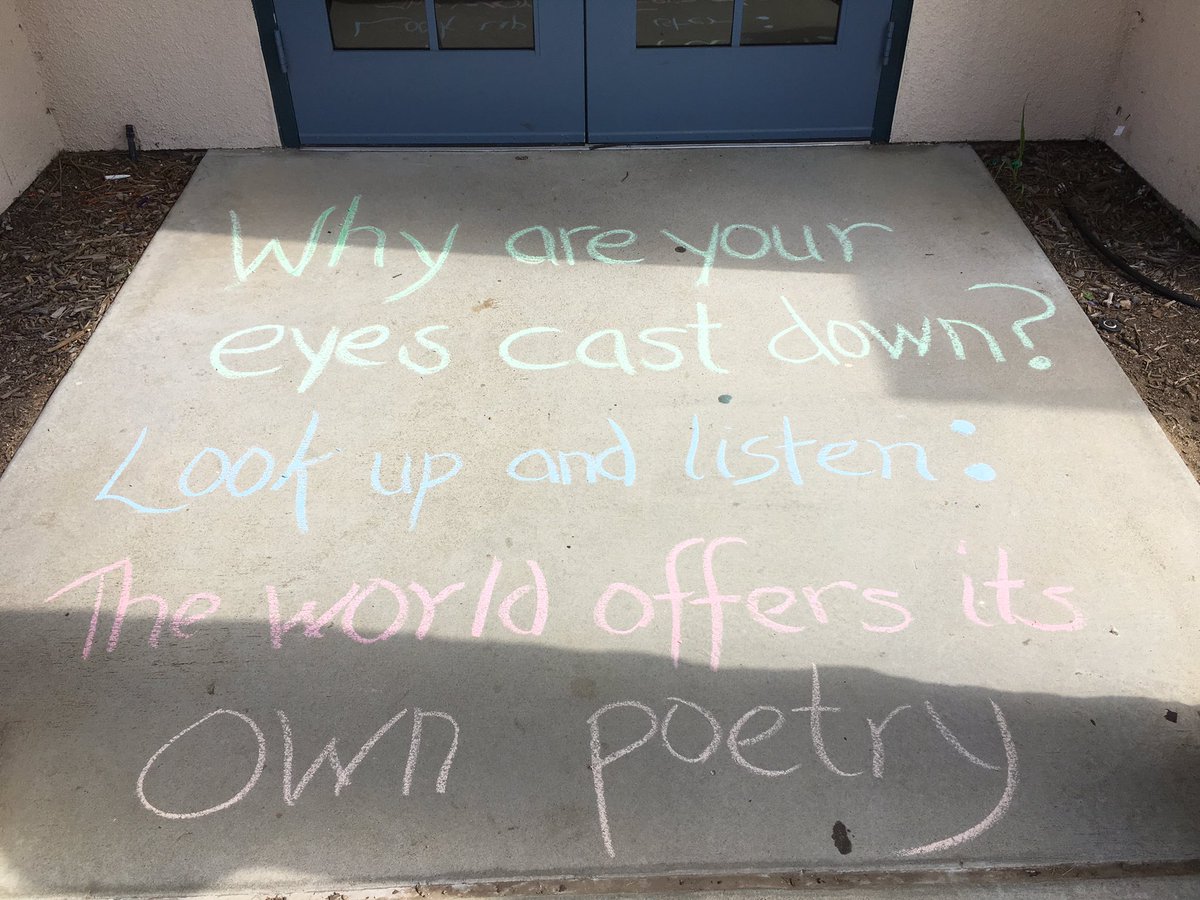 Why are your
eyes cast down?
Look up and listen:
The world offers its
own poetry